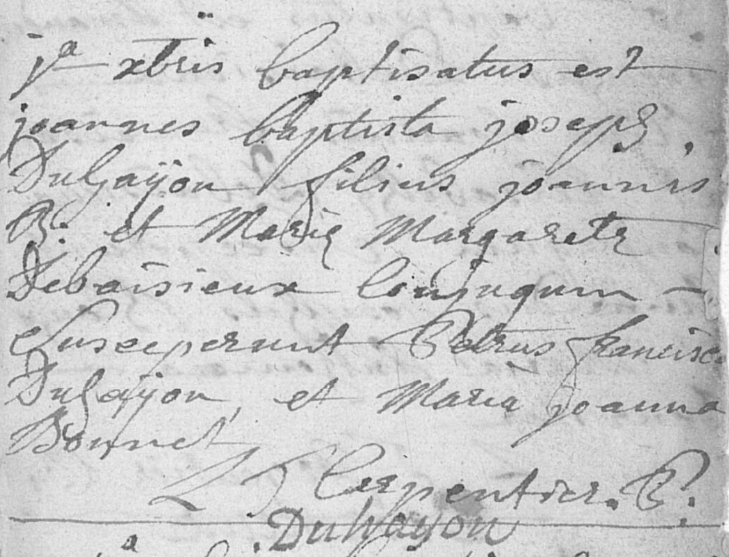 j^a xbris baptisatus est
joannes baptista joseph
Duhaÿon filius joannis
B: et Mariæ Margaretæ
Debaisieux Conjugum -
Susceperunt Petrus francisc
Duhaÿon, et Maria joanna
Bonnet
Carpentier. P.
Duhayon
a